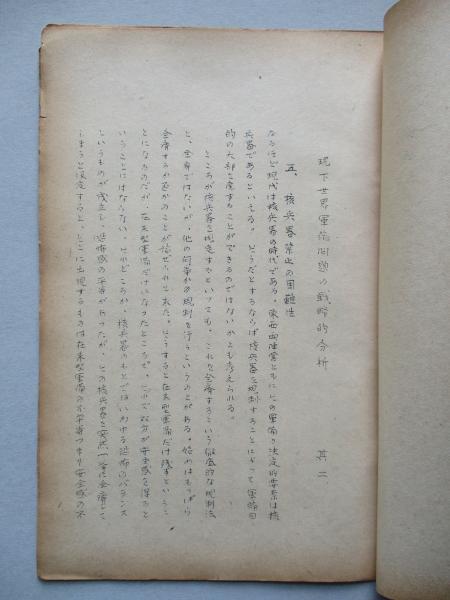 現下世界軍備問題の戦略的分析　其二、
五、核兵器禁止の困難性
なるほど現代は核兵器の時代である。東西両陣営ともにその軍備の決定的要素は核
兵器であるといえる。そうだとするならば核兵器を規制することによって軍縮目
的の大部を達することができるのではないかとも考えられる。
ところが核兵器を規定するといっても、これを全廃するという徹底的な規制法
と、全廃ではないが、他の何等かの規制を行うというのがある。始めはもっぱら
全廃するか否かのことが論ぜられて来た。そうすると在来型軍備だけ残るというこ
とになるのだが、在来型軍備だけになったところで、それで双方が安全感を得ると
いうことにはならない。それどころか、核兵器のもとではいわゆる恐怖のバランス
というものが成立し、恐怖感の平等があったが、その核兵器を突然一挙に全廃して
しまうと仮定すると、そこに出現するものは在来型軍備の不平等つまり安全感の不